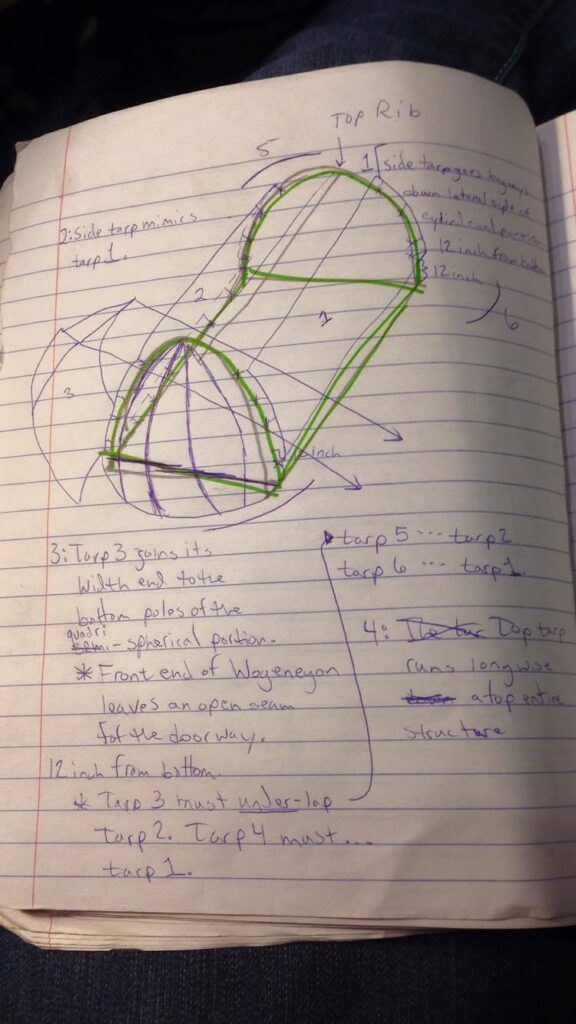 TOP Rib
5
1 side tarp goes longways
down lateral side of
cylindrical portion
12 inch from bottom
12 inch
2: Side tarp mimics
tarp 1.
2
1
6
3
inch
3: Tarp 3 joins its
width end to the
bottom poles of the
quadri
-spherical portion.
* Front end of Wogeneyon
leaves an open seam
for the doorway.
12 inch from bottom.
* Tarp 3 must under-lap
Tarp 2. Tarp 4 must...
tarp 1.
tarp 5 ... tarp 2
tarp 6 ... tarp 1.
4: The tar Top tarp
runs longwise
atop entire
structure